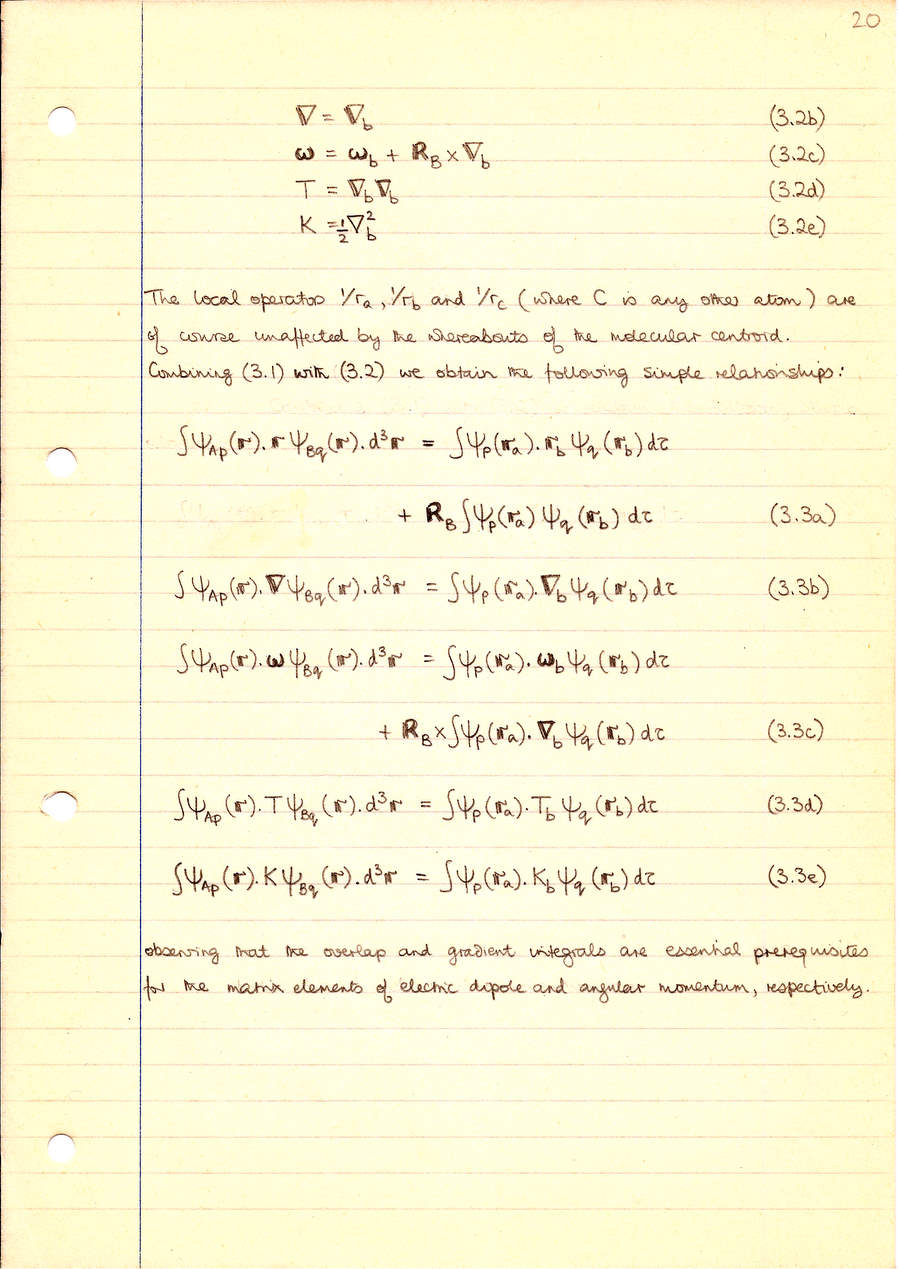 20
∇ = ∇_b (3.2b)
ω = ω_b + R_B × ∇_b (3.2c)
T = ∇_b ∇_b (3.2d)
K = ½∇_b² (3.2e)
The local operators 1/r_a, 1/r_b and 1/r_c (where C is any other atom) are
of course unaffected by the whereabouts of the molecular centroid.
Combining (3.1) with (3.2) we obtain the following simple relationships:
∫ψ_Ap(r).r ψ_Bq(r).d³r = ∫ψ_p(r_a).r_b ψ_q(r_b)dτ
+ R_B ∫ψ_p(r_a) ψ_q(r_b) dτ (3.3a)
∫ψ_Ap(r).∇ψ_Bq(r).d³r = ∫ψ_p(r_a).∇_b ψ_q(r_b)dτ (3.3b)
∫ψ_Ap(r).ωψ_Bq(r).d³r = ∫ψ_p(r_a).ω_b ψ_q(r_b)dτ
+ R_B × ∫ψ_p(r_a).∇_b ψ_q(r_b)dτ (3.3c)
∫ψ_Ap(r).Tψ_Bq(r).d³r = ∫ψ_p(r_a).T_b ψ_q(r_b)dτ (3.3d)
∫ψ_Ap(r).Kψ_Bq(r).d³r = ∫ψ_p(r_a).K_b ψ_q(r_b)dτ (3.3e)
observing that the overlap and gradient integrals are essential prerequisites
for the matrix elements of electric dipole and angular momentum, respectively.